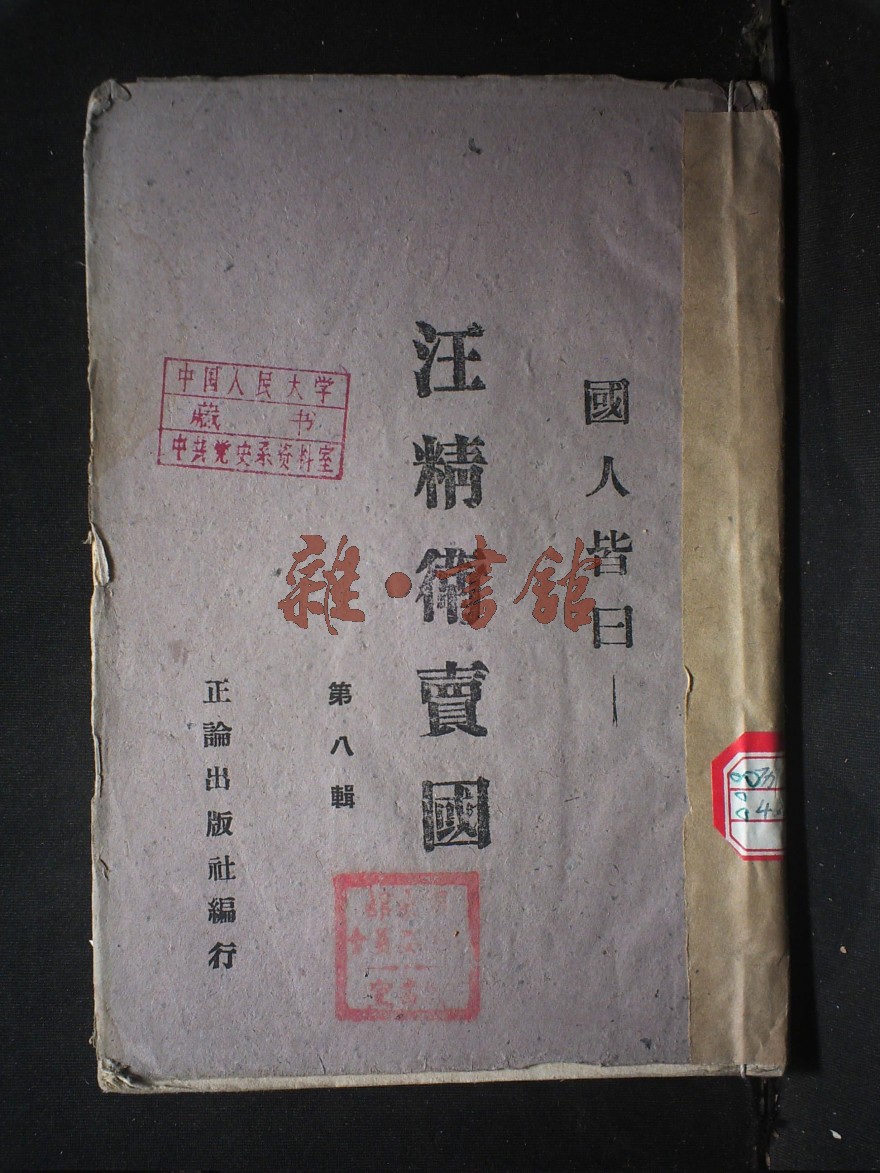 國人皆曰—
汪精衛賣國
第八輯
正論出版社編行
中国人民大学
藏书
中共党史系资料室
雜·書館